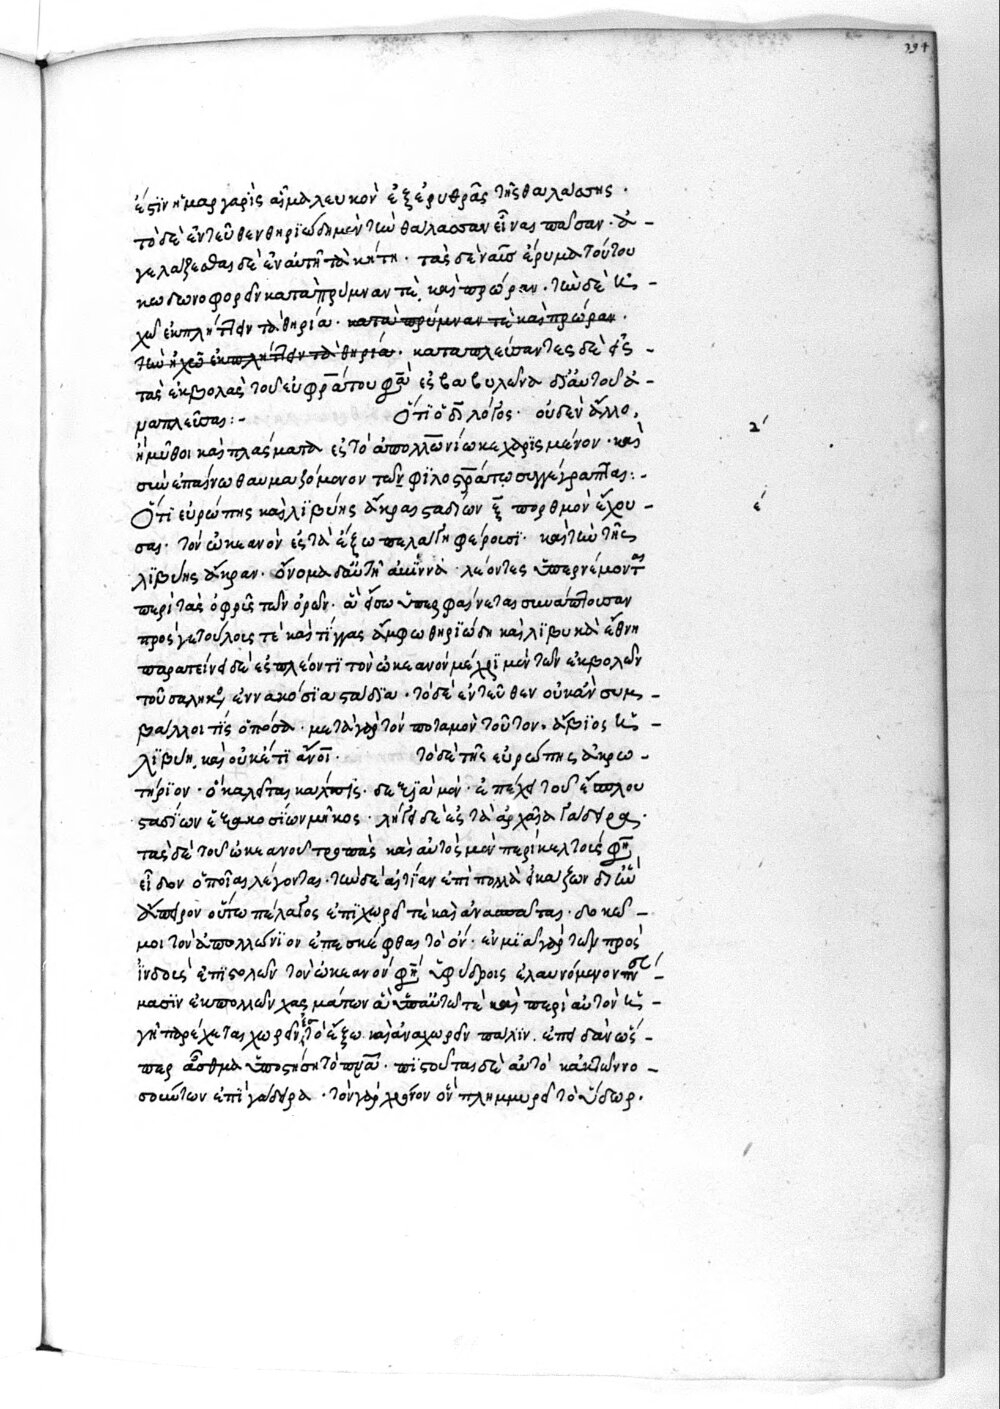 194
ἐστὶν ἡ μαργαρὶς αἷμα λευκὸν ἐξ ἐρυθρᾶς τῆς θαλάσσης ·
τὸ δὲ ἐντεῦθεν θηριώδη μὲν τὴν θάλασσαν εἶναι πᾶσαν · ἀ -
γελάζεσθαι δὲ ἐν αὐτῇ τὰ κήτη · τὰς δὲ ναῦς ἔρυμα τούτου
κωδωνοφορεῖν κατὰ πρύμναν τὲ καὶ πρώραν · τὴν δὲ ἠ -
χὼ ἐκπλήττειν τὰ θηρία · κατὰ πρύμναν τὲ καὶ πρώραν ·
τὴν ἠχὼ ἐκπλήττειν τὰ θηρία · καταπλεύσαντες δὲ εἰς -
τὰς ἐκβολὰς τοῦ εὐφράτου φασὶ ἐς βαβυλῶνα δι' αὐτοῦ ἀ -
ναπλεῦσαι :- Ὅτι ὁ λόγος · οὐδὲν ἄλλο,
ἢ μῦθοι καὶ πλάσματα ἐς τὸ ἀπολλωνίω κεχαρισμένον · καὶ
συγγέγραπται :-
Ὅτι εὐρώπης καὶ λιβύης ἄκραι σταδίων ξ πορθμὸν ἔχου -
σαι · τὸν ὠκεανὸν ἐς τὰ ἔξω πελάγη φέρουσι · καὶ τὴν τῆς
λιβύης ἄκραν · ὄνομα δ' αὐτῇ ἄβιννα · λέοντες ὑπερνέμονται
περὶ τὰς ὀφρῦς τῶν ὀρῶν · ἃ εἴσω ὑπερφαίνεται συνάπτουσαν
πρὸς γετούλοις τὲ καὶ τίγγας ἄμφω θηριώδη καὶ λιβυκὰ ἔθνη
παρατείνει δὲ ἐσπλέοντι τὸν ὠκεανὸν μέχρι μὲν τῶν ἐκβολῶν
τοῦ σάληκος ἐννακόσια στάδια · τὸ δὲ ἐντεῦθεν οὐκ ἂν συμ -
βάλλοι τὶς ὁπόσα · μετὰ γὰρ τὸν ποταμὸν τοῦτον · ἄβιος ἡ -
λιβύη, καὶ οὐκέτι ἄνοι · τὸ δὲ τῆς εὐρώπης ἀκρω -
τήριον · ὃ καλεῖται κάλπις · δεξιὰ μὲν · ἐπέχει τοῦ ἔσπλου
σταδίων ἑξακοσίων μῆκος · λήγει δὲ ἐς τὰ ἀρχαῖα γάδειρα ·
τὰς δὲ τοῦ ὠκεανοῦ τροπὰς καὶ αὐτὸς μὲν περὶ κελτοὺς φησὶ
εἶδον ὁποῖαι λέγονται · τὴν δὲ αἰτίαν ἐπὶ πολλὰ εἰκάζων δι' ἣν
ἄπειρον οὕτω πέλαγος ἐπιχωρεῖ τὲ καὶ ἀνασπᾶται · δοκεῖ -
μοι τὸν ἀπολλώνιον ἐπεσκέφθαι τὸ ὄν · ἐν μιᾷ γὰρ τῶν πρὸς
ἰνδοὺς ἐπιστολῶν τὸν ὠκεανὸν φησὶ ὑφύδροις ἐλαυνόμενον πνεύ -
μασιν ἐκ πολλῶν χασμάτων ἃ ὑπ' αὐτῶ τὲ καὶ περὶ αὐτὸν ἡ -
γῆ παρέχεται χωρεῖν ἐς τὸ ἔξω καὶ ἀναχωρεῖν πάλιν · ἐπειδὰν ὥς -
περ ἄσθμα ὑπονοστήσῃ τὸ πνεῦμα · πιστοῦται δὲ αὐτὸ κἀκ τῶν νο -
σούντων ἐπὶ γάδειρα · τὸν γὰρ χρόνον ὃν πλημμυρεῖ τὸ ὕδωρ ·